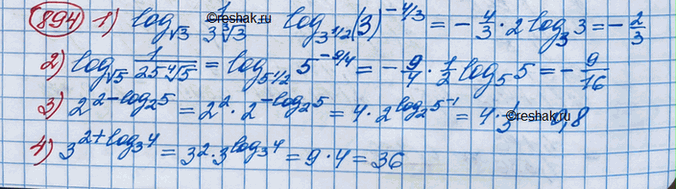 894 1) log_√3 1/(3∛3) log_3^1/2 (3)^-4/3 = - 4/3 · 2 log_3 3 = - 2/3
2) log_√5 1/(25 ∜5) = log_5^1/2 5^-9/4 = - 9/4 · 1/2 log_5 5 = - 9/16
3) 2^(2-log_2 5) = 2^2 · 2^(-log_2 5) = 4 · 2^(log_2 5^-1) = 4 · 1/5 = 0,8
4) 3^(2+log_3 4) = 3^2 · 3^(log_3 4) = 9 · 4 = 36
©reshak.ru
©reshak.ru